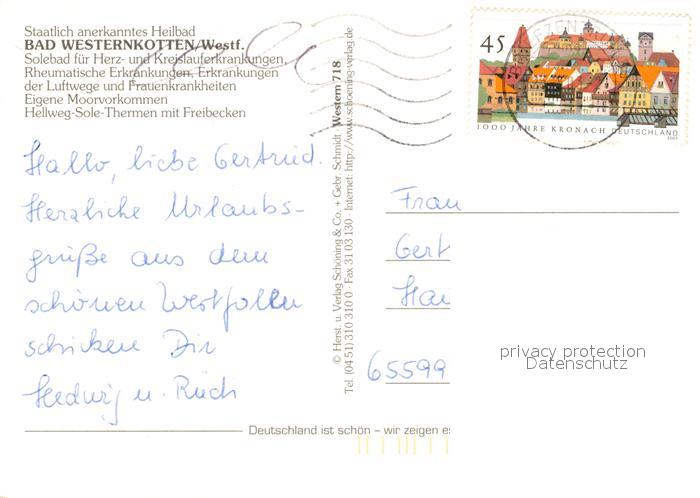 Staatlich anerkanntes Heilbad
BAD WESTERNKOTTEN/Westf.
Solebad für Herz- und Kreislauferkrankungen,
Rheumatische Erkrankungen, Erkrankungen
der Luftwege und Frauenkrankheiten
Eigene Moorvorkommen
Hellweg-Sole-Thermen mit Freibecken
Hallo, liebe Gertrud.
Herzliche Urlaubs-
grüße aus dem
schönen Westfalen
schicken Dir
Hedwig u.
© Herst. u. Verlag Schöning & Co. + Gebr. Schmidt · Western 718
Tel. (04 51) 310 310 0 · Fax 31 03 130 · Internet: http://www.schoening-verlag.de
45
1000 JAHRE KRONACH DEUTSCHLAND
2003
Frau
Gert
Hai
65599
privacy protection
Datenschutz
Deutschland ist schön – wir zeigen es